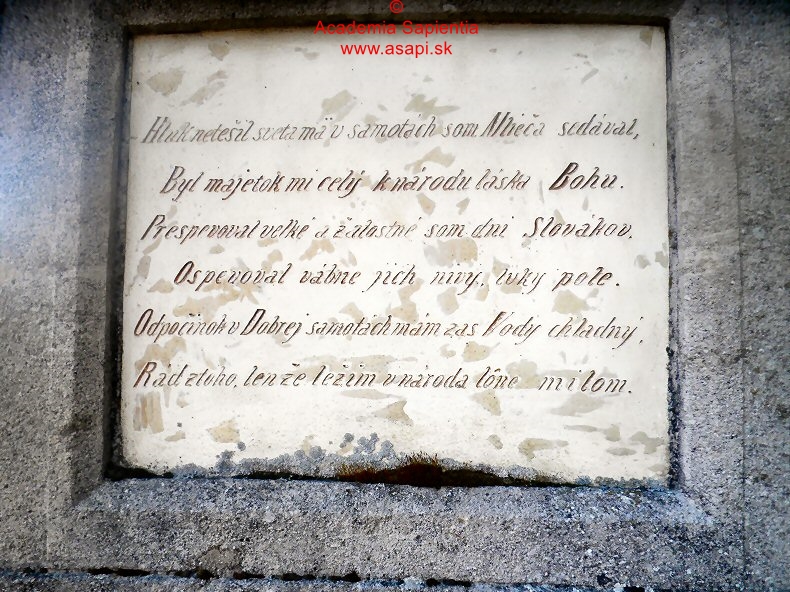 ©
Academia Sapientia
www.asapi.sk
Hluk netešil sveta mä v samotách som Mlieča sedával,
Byl majetok mi celý k národu láska Bohu.
Prespevoval velké a žalostné som dni Slovákov.
Ospevoval vábne jich nivy, luky pole.
Odpočinok v Dobrej samotách mám zas Vody chladný,
Rád z toho, len že ležím v národa lône milom.